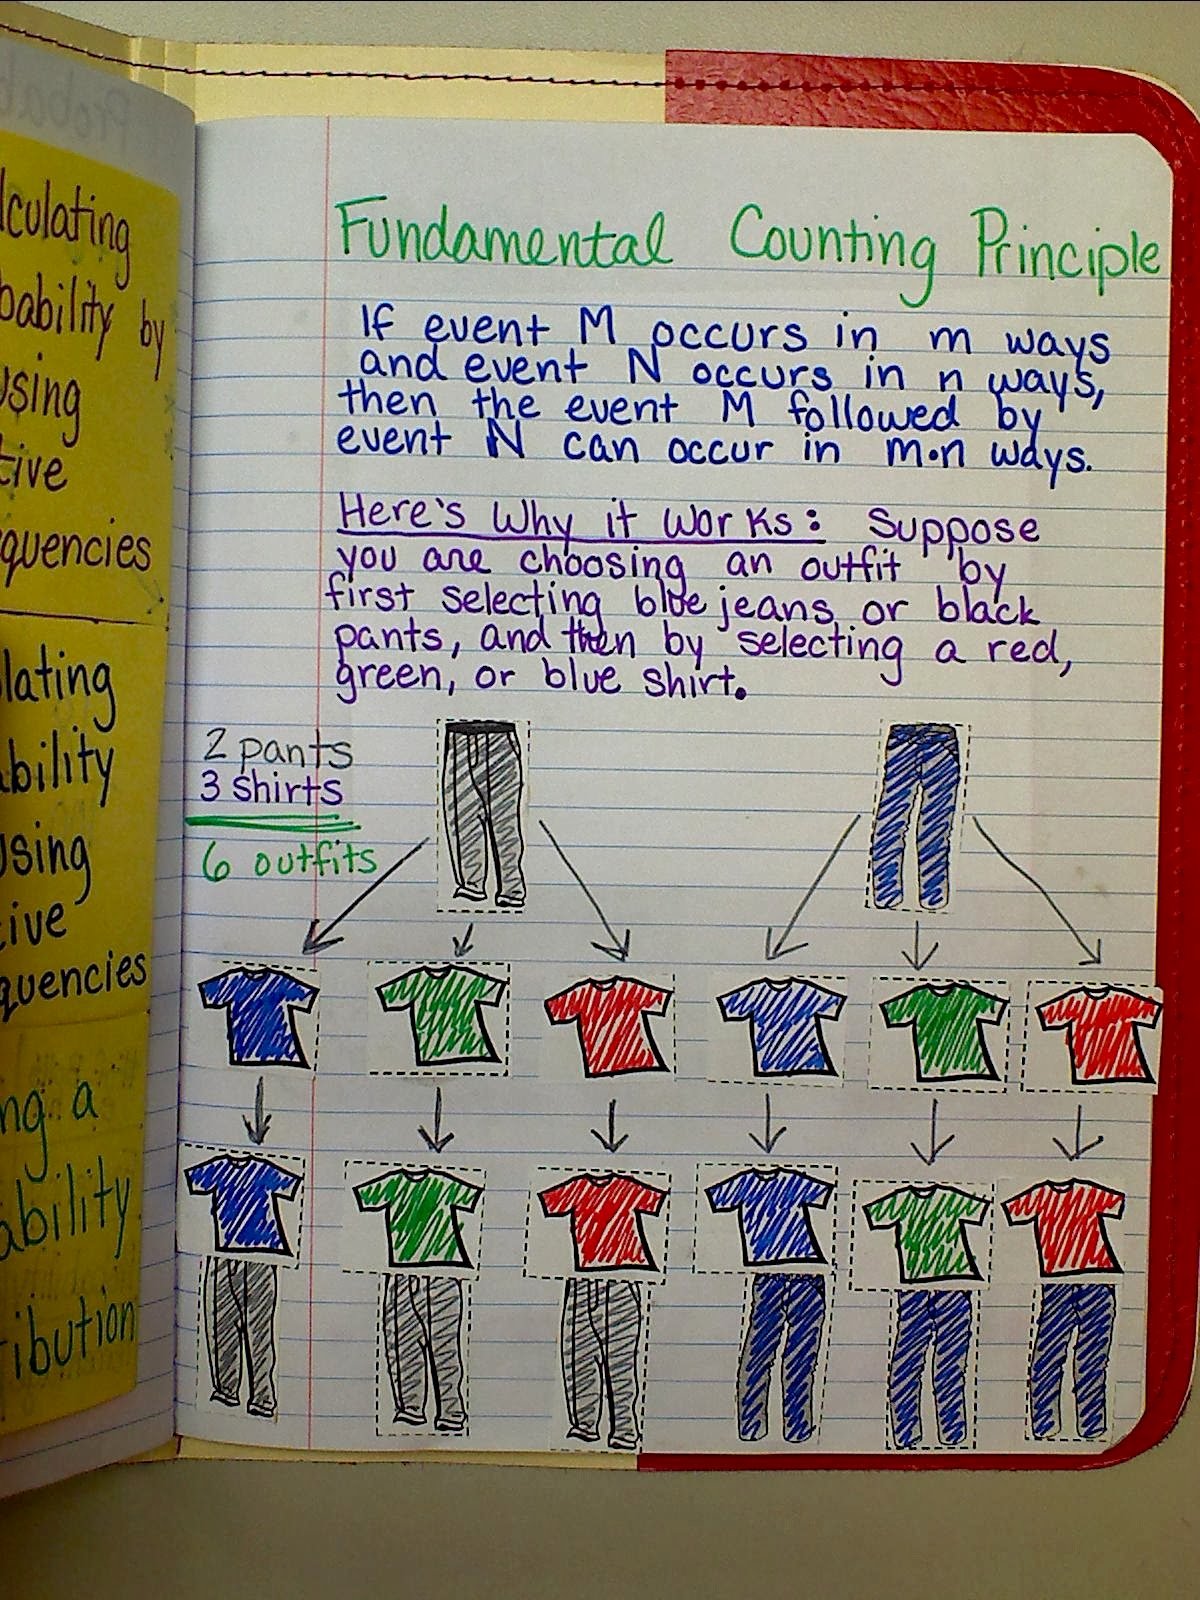 lculating
bability by
using
tive
quencies
lating
ability
using
tive
quencies
ng a
ability
ibution
Fundamental Counting Principle
If event M occurs in m ways
and event N occurs in n ways,
then the event M followed by
event N can occur in m·n ways.
Here's Why it Works: Suppose
you are choosing an outfit by
first selecting blue jeans or black
pants, and then by selecting a red,
green, or blue shirt.
2 pants
3 shirts
6 outfits